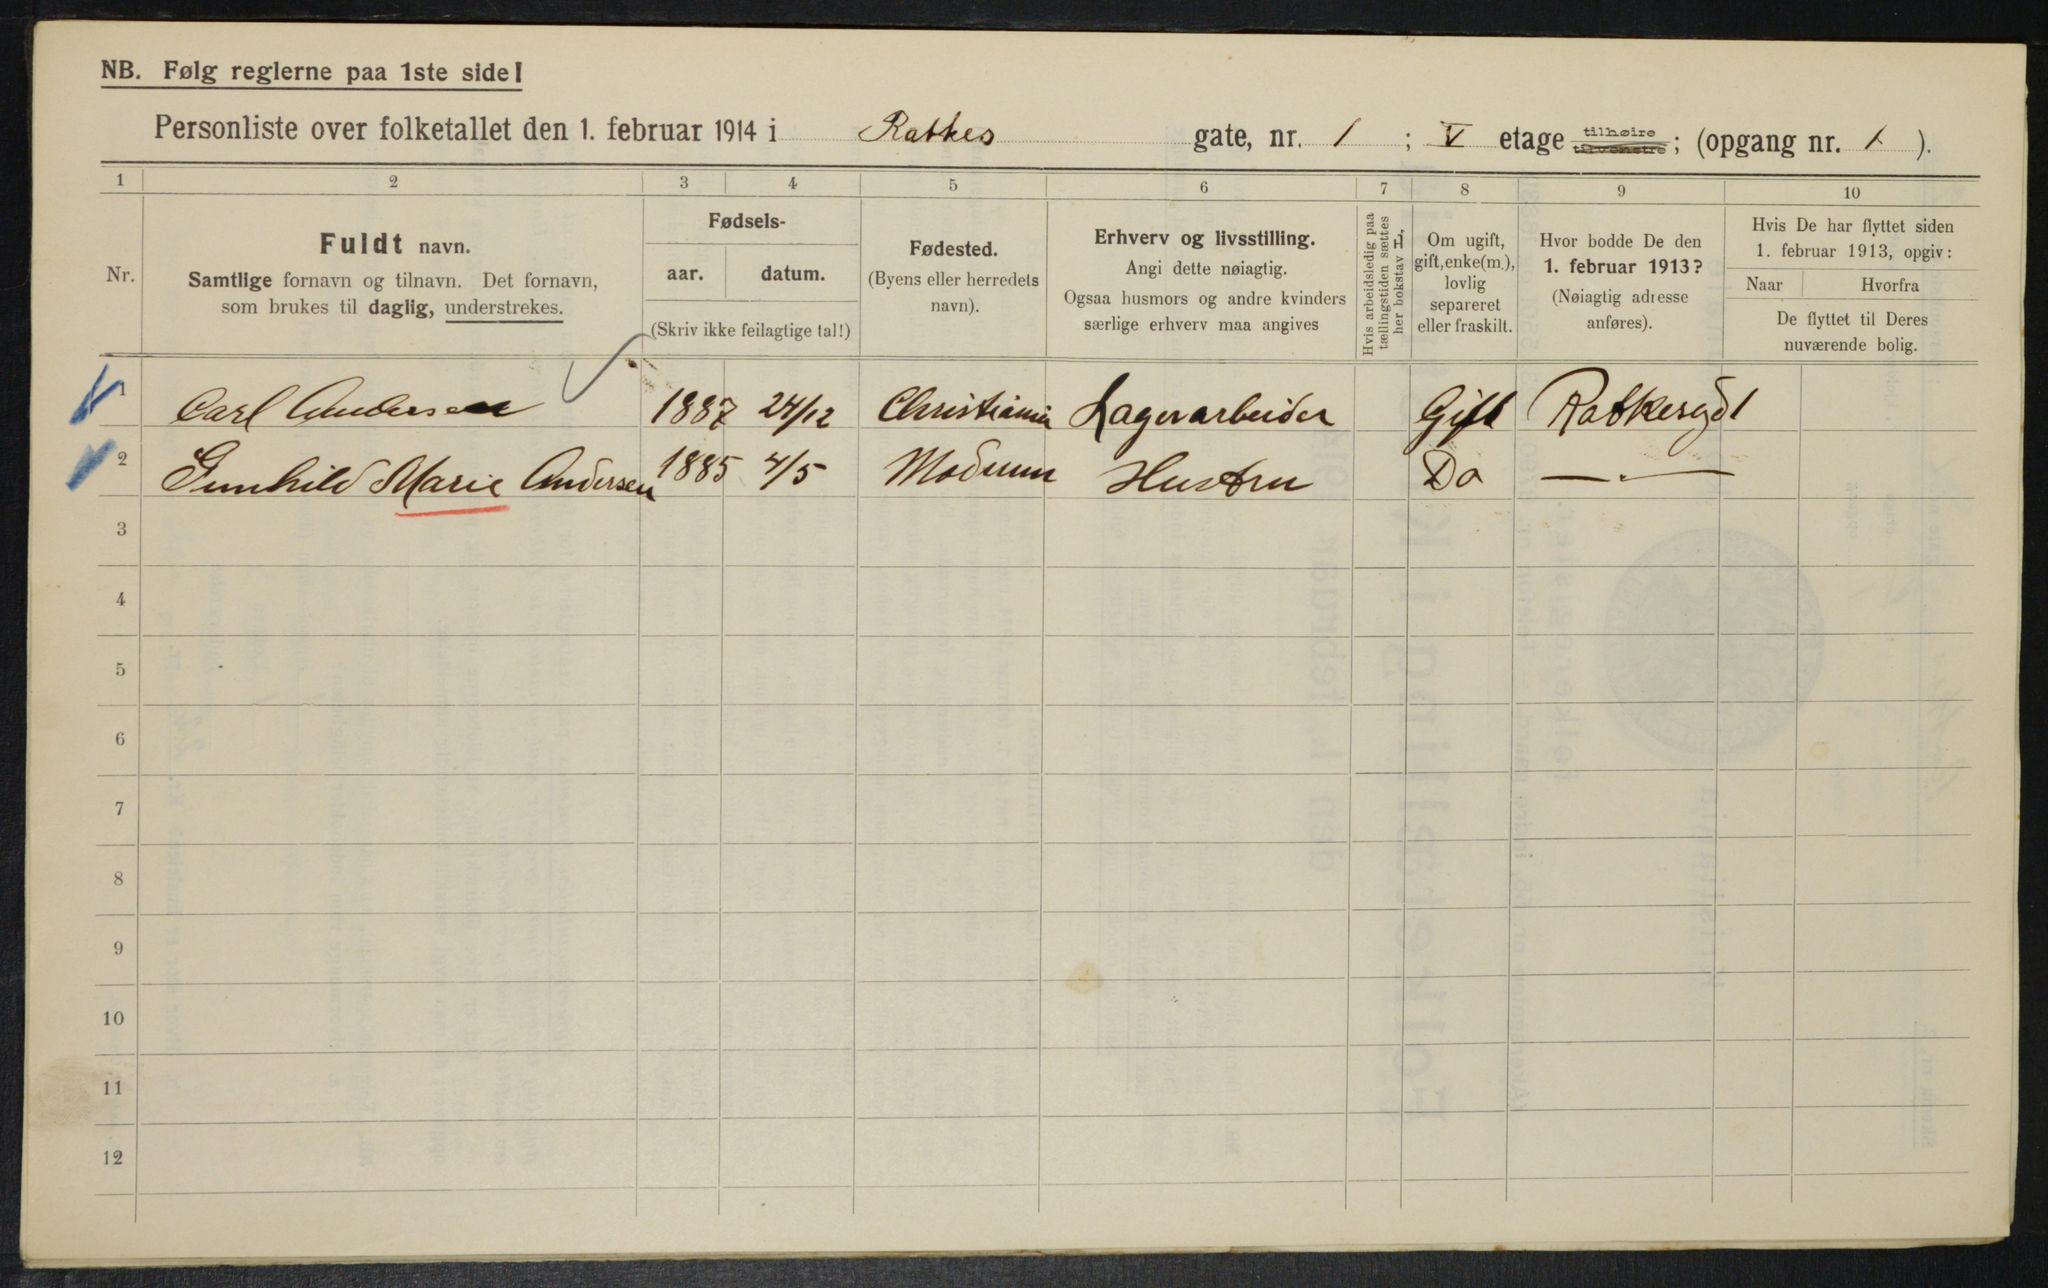 NB. Følg reglerne paa 1ste side!
Personliste over folketallet den 1. februar 1914 i Rathkes gate, nr. 1; V etage tilhøire tilvenstre; (opgang nr. 1).
1 2 3 4 5 6 7 8 9 10
Nr.
Fuldt navn.
Samtlige fornavn og tilnavn. Det fornavn,
som brukes til daglig, understrekes.
Fødsels-
aar. datum.
(Skriv ikke feilagtige tal!)
Fødested.
(Byens eller herredets
navn).
Erhverv og livsstilling.
Angi dette nøiagtig.
Ogsaa husmors og andre kvinders
særlige erhverv maa angives
Hvis arbeidsledig paa
tællingstiden sættes
her bokstav L.
Om ugift,
gift, enke(m.),
lovlig
separeret
eller fraskilt.
Hvor bodde De den
1. februar 1913?
(Nøiagtig adresse
anføres).
Hvis De har flyttet siden
1. februar 1913, opgiv:
Naar Hvorfra
De flyttet til Deres
nuværende bolig.
1 Carl Andersen 1887 24/12 Christiania Lagerarbeider Gift Rathkesgd 1
2 Gunhild Marie Andersen 1885 4/5 Modum Hustru Do —·—
3
4
5
6
7
8
9
10
11
12